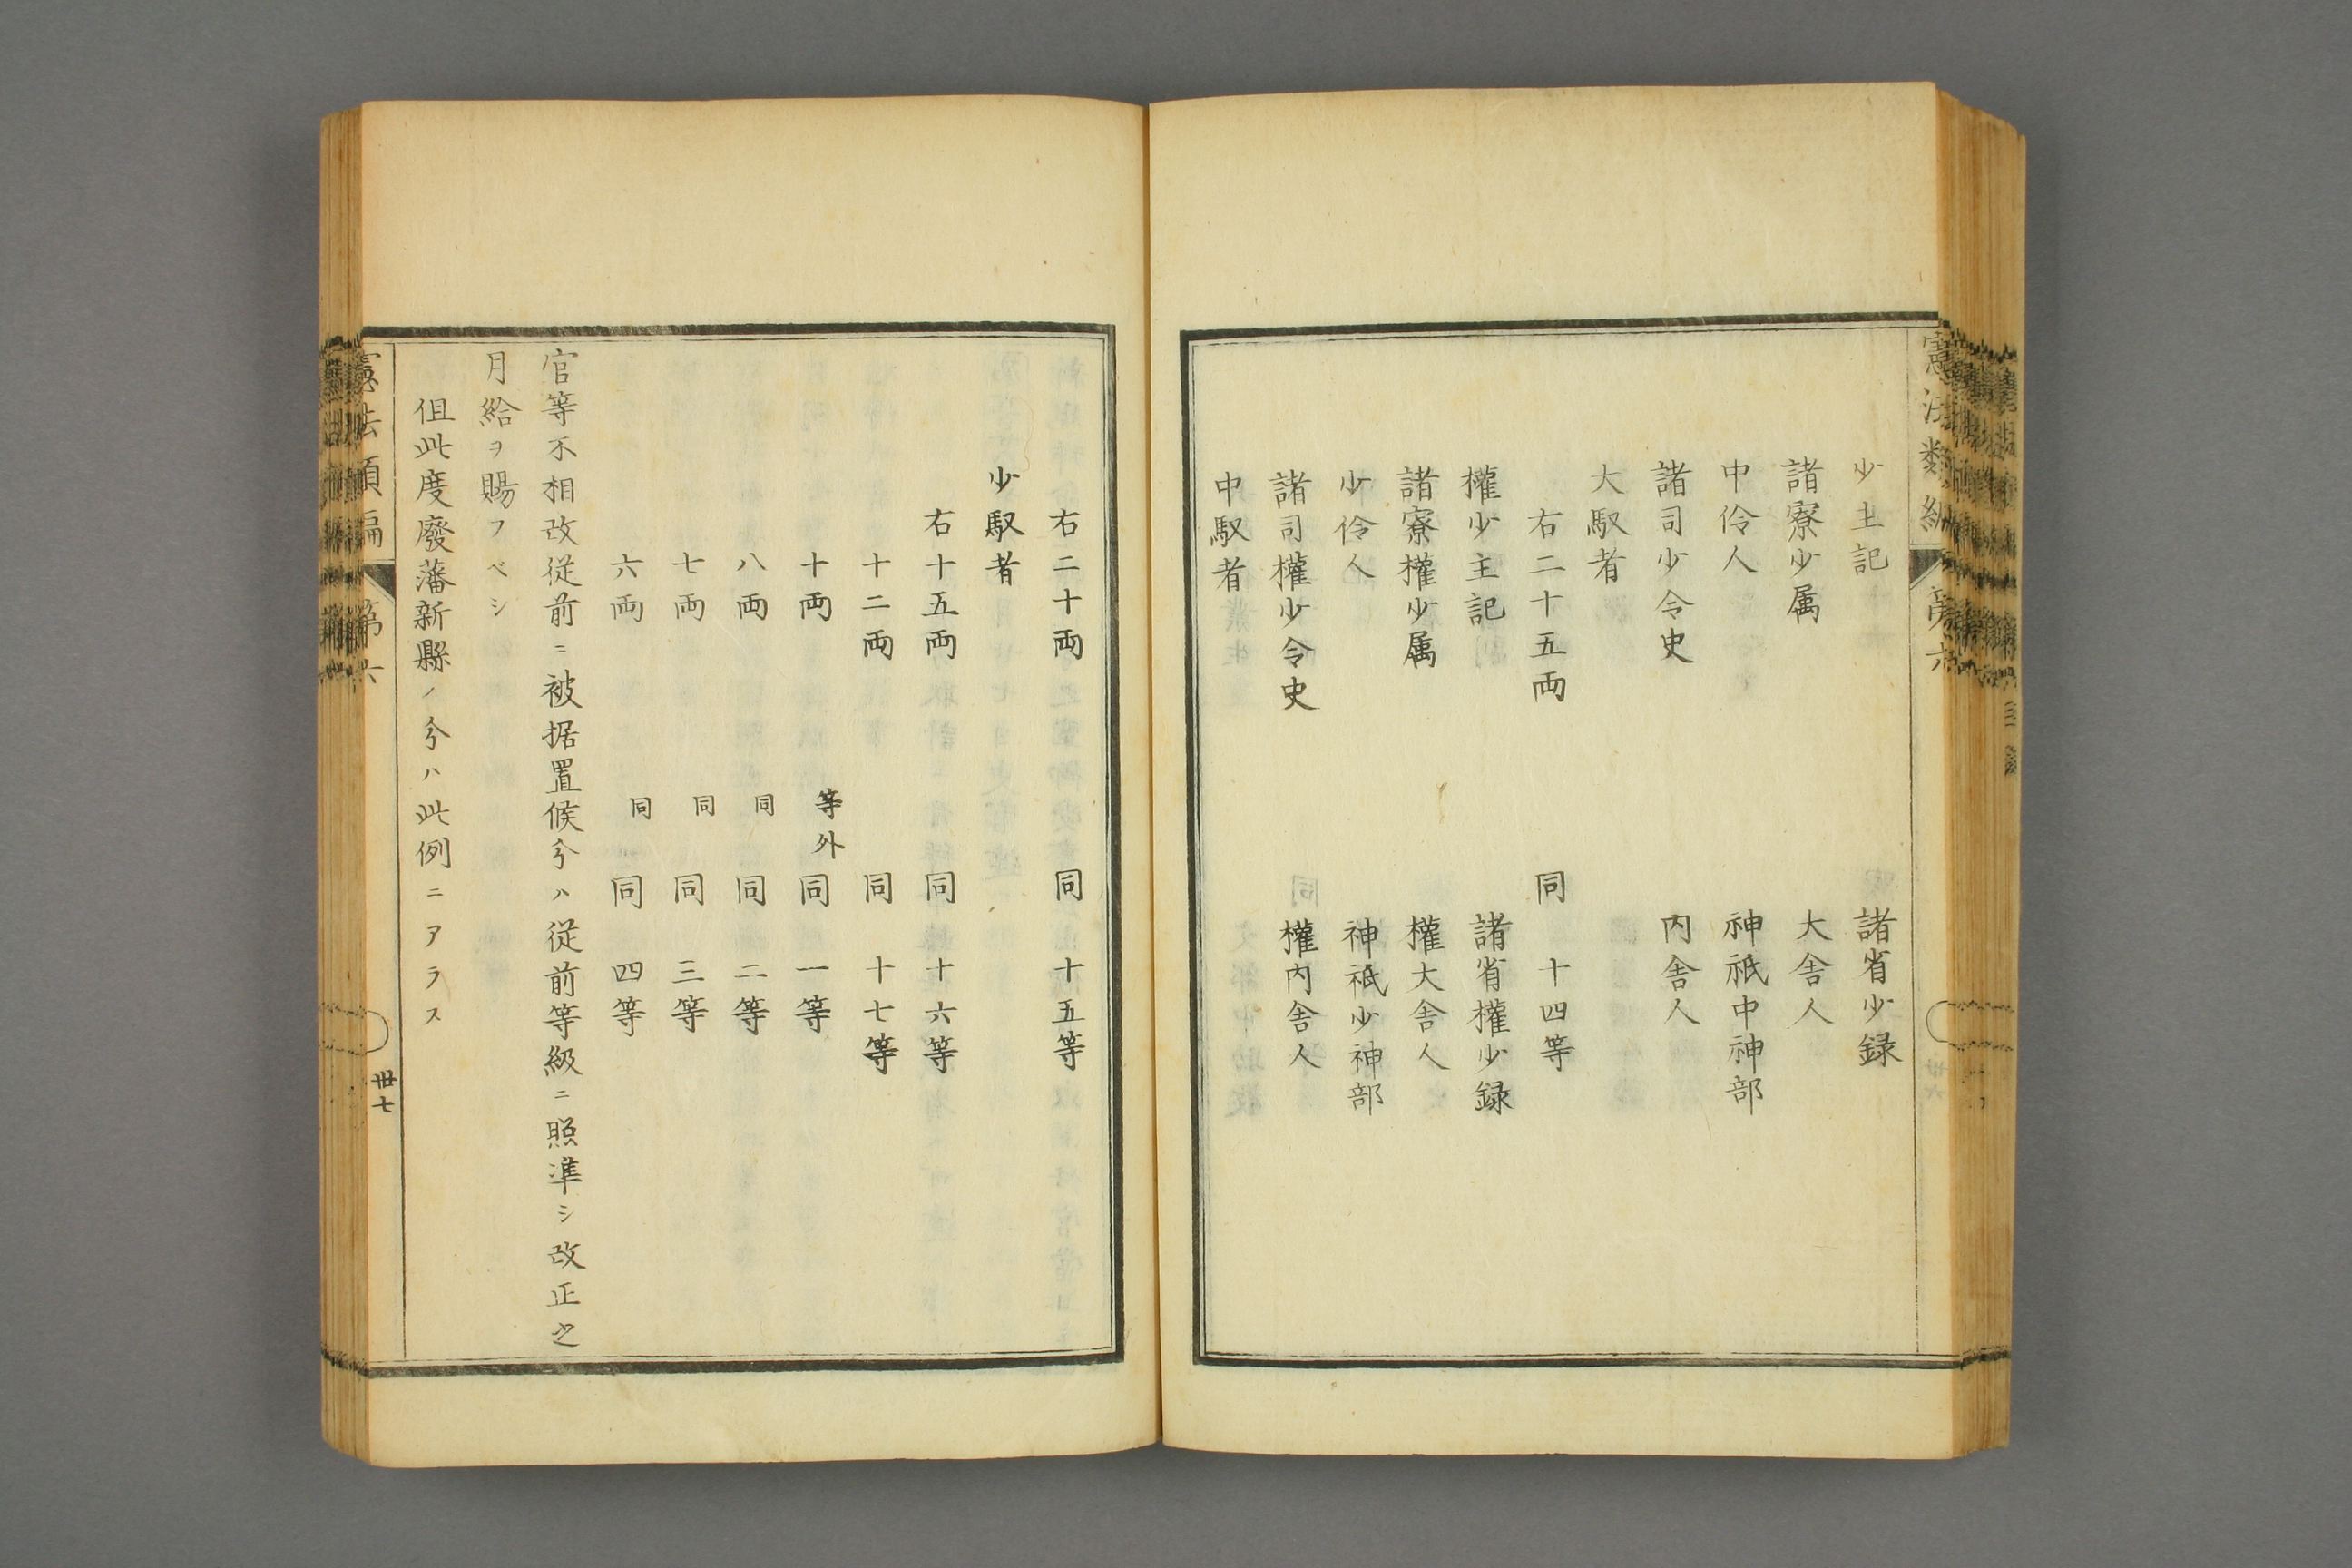 憲法類編 第六
少主記 諸省少録
諸寮少属 大舎人
中伶人 神祇中神部
諸司少令史 内舎人
大馭者
右二十五両 同 十四等
權少主記 諸省權少録
諸寮權少属 權大舎人
少伶人 神祇少神部
諸司權少令史 權内舎人
中馭者
右二十両 同 十五等
少馭者
右十五両 同 十六等
十二両 同 十七等
十両 等外同 一等
八両 同同 二等
七両 同同 三等
六両 同同 四等
官等不相改従前ニ被据置候分ハ従前等級ニ照準シ改正之
月給ヲ賜フベシ
但此度廢藩新縣ノ分ハ此例ニアラス
憲法類編 第六
卅七